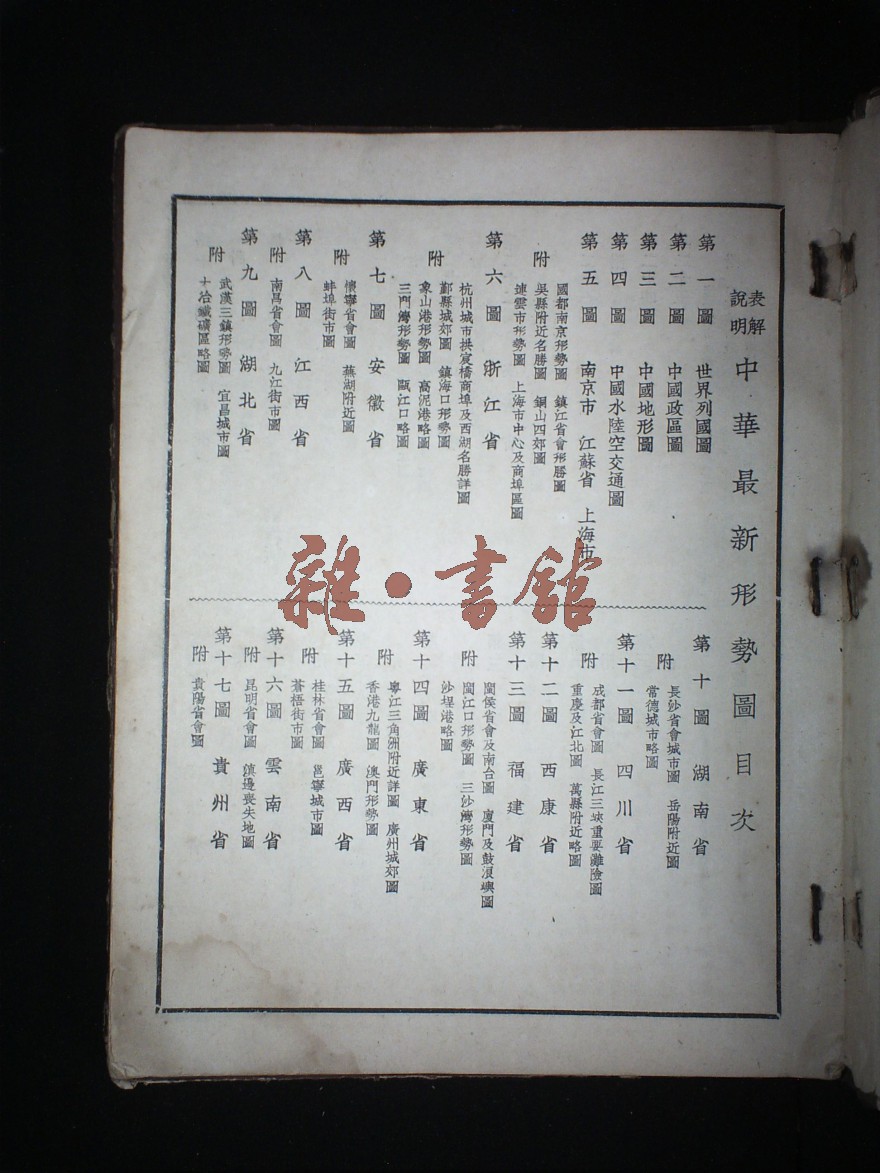 表解
說明
中華最新形勢圖目次
第一圖 世界列國圖
第二圖 中國政區圖
第三圖 中國地形圖
第四圖 中國水陸空交通圖
第五圖 南京市 江蘇省 上海市
國都南京形勢圖 鎮江省會形勝圖
附 吳縣附近名勝圖 銅山四郊圖
連雲市形勢圖 上海市中心及商埠區圖
第六圖 浙江省
杭州城市拱宸橋商埠及西湖名勝詳圖
鄞縣城郊圖 鎮海口形勢圖
附 象山港形勢圖 高泥港略圖
三門灣形勢圖 甌江口略圖
第七圖 安徽省
附 懷寧省會圖 蕪湖附近圖
蚌埠街市圖
第八圖 江西省
附 南昌省會圖 九江街市圖
第九圖 湖北省
附 武漢三鎮形勢圖 宜昌城市圖
大冶鐵礦區略圖
第十圖 湖南省
附 長沙省會城市圖 岳陽附近圖
常德城市略圖
第十一圖 四川省
附 成都省會圖 長江三峽重要灘險圖
重慶及江北圖 萬縣附近略圖
第十二圖 西康省
第十三圖 福建省
閩侯省會及南台圖 廈門及鼓浪嶼圖
附 閩江口形勢圖 三沙灣形勢圖
沙埕港略圖
第十四圖 廣東省
附 粵江三角洲附近詳圖 廣州城郊圖
香港九龍圖 澳門形勢圖
第十五圖 廣西省
附 桂林省會圖 邕寧城市圖
蒼梧街市圖
第十六圖 雲南省
附 昆明省會圖 滇邊喪失地圖
第十七圖 貴州省
附 貴陽省會圖
雜·書館